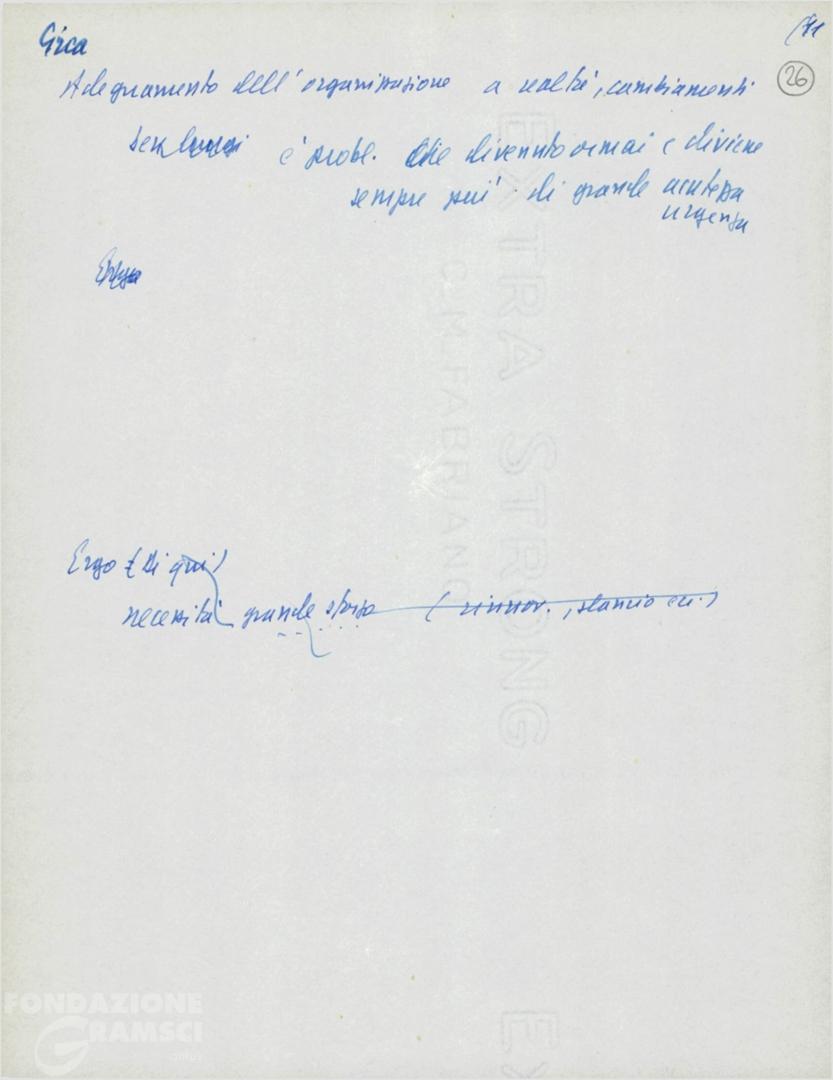 Circa
Adeguamento dell'organizzazione a realtà, cambiamenti
26
è probl. che divenuto ormai e diviene
sempre più di grande acutezza
urgenza
Ergo (di qui)
necessità grande sforzo (rinnov., slancio ecc.)
EXTRA STRONG
C.M. FABRIANO
EX
FONDAZIONE
GRAMSCI
onlus